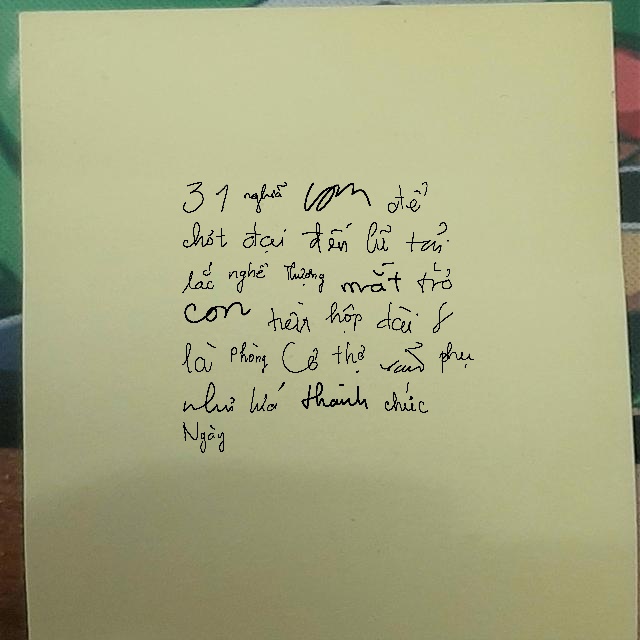 31 nghĩa con để
chót đại đến lữ tả
lắc nghề Thượng mắt trở
con trên hộp dài 8
là Phòng Cô thợ phụ
như hoá thành chức
Ngày